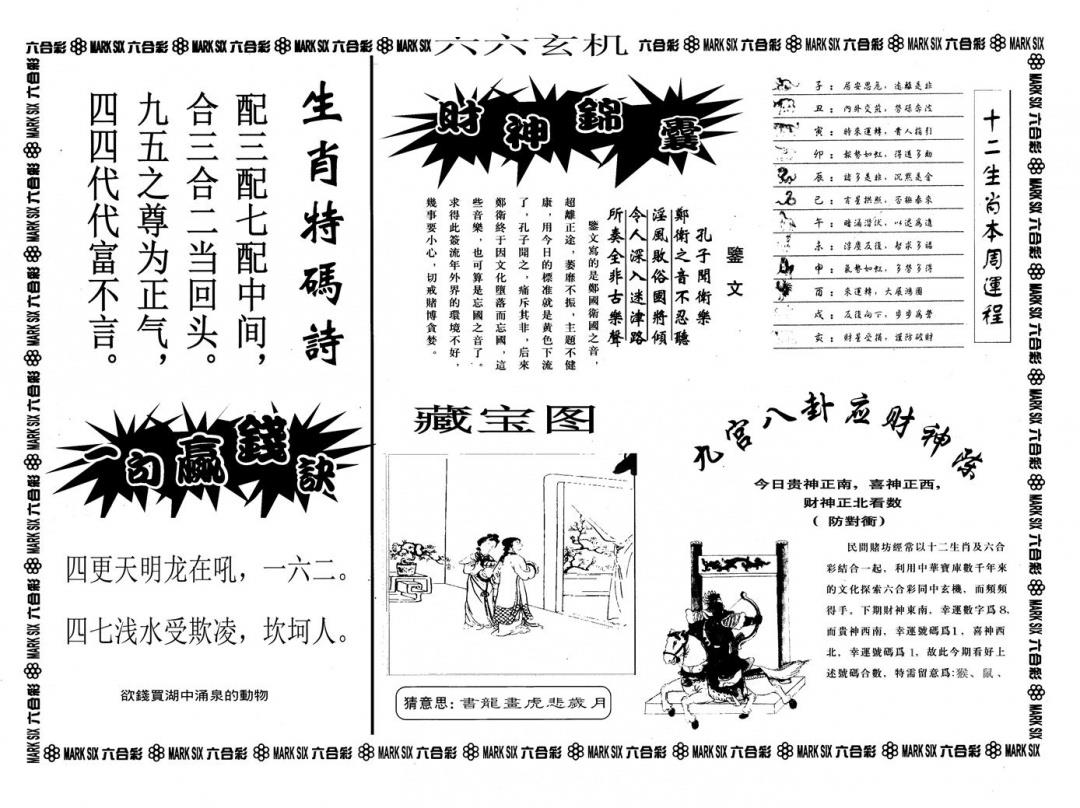 六合彩 MARK SIX 六合彩 MARK SIX 六合彩 MARK SIX 六合彩 MARK SIX 六六玄机 六合彩 MARK SIX 六合彩 MARK SIX 六合彩 MARK SIX 六合彩 MARK SIX
生肖特碼詩
配三配七配中间，
合三合二当回头。
九五之尊为正气，
四四代代富不言。
一句贏錢訣
四更天明龙在吼，一六二。
四七浅水受欺凌，坎坷人。
欲錢買湖中涌泉的動物
財神錦囊
鑒文
孔子聞衛樂
鄭衛之音不忍聽
淫風敗俗國將傾
令人深入迷津路
所奏全非古樂聲
鑒文寫的是鄭國衛國之音，
超離正途，萎靡不振，主題不健
康，用今日的標准就是黄色下流
了，孔子聞之，痛斥其非，后來
鄭衛終于因文化墮落而忘國，這
些音樂，也可算是忘國之音了。
求得此簽流年外界的環境不好，
幾事要小心，切戒賭博貪婪。
藏宝图
猜意思：書龍畫虎悲歲月
十二生肖本周運程
子：居安思危，遠離是非
丑：内外交煎，
寅：時來運轉，貴人指引
卯：
辰：諸多是非，沉默是金
巳：
午：
未：
申：氣勢如虹，多勞多得
酉：來運轉，大展鴻圖
戌：
亥：財星受損，謹防破財
九宫八卦应财神
今日贵神正南，喜神正西，
财神正北看数
（防對衝）
民間賭坊經常以十二生肖及六合
彩結合一起，利用中華寶庫數千年來
的文化探索六合彩同中玄機，而頻頻
得手。下期財神東南，幸運數字爲8，
而貴神西南，幸運號碼爲1，喜神西
北，幸運號碼爲1，故此今期看好上
述號碼合數，特需留意爲:猴、鼠、
MARK SIX 六合彩 MARK SIX 六合彩 MARK SIX 六合彩 MARK SIX 六合彩 MARK SIX 六合彩 MARK SIX 六合彩 MARK SIX 六合彩 MARK SIX 六合彩 MARK SIX 六合彩 MARK SIX